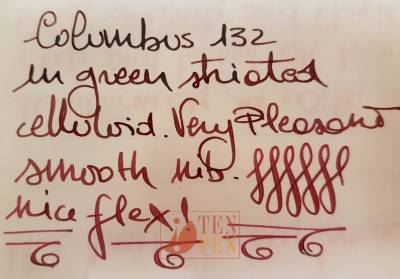 Columbus 132
in green striated
celluloid. Very Pleasant
smooth nib.
nice flex!
TEN
PEN